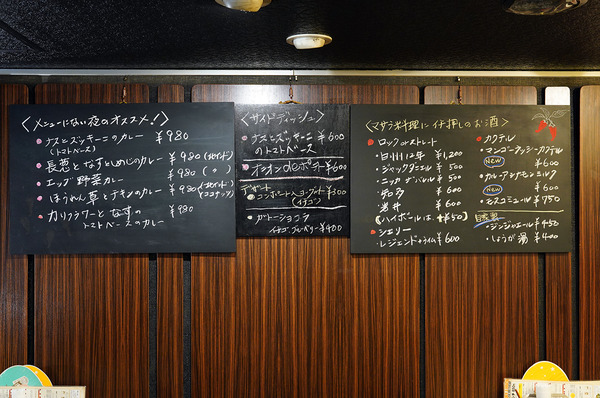 〈メニューにない夜のオススメ!〉
ナスとズッキーニのカレー ¥980
(トマトベース)
なすとしめじのカレー ¥980
エッグ野菜カレー ¥980
ほうれん草とチキンのカレー ¥980
カリフラワーとなすの ¥980
トマトベースのカレー
〈サイドディッシュ〉
ナスとズッキーニ ¥600
のトマトベース
オニオンdeポテト ¥600
デザート
コンポート入ヨーグルト ¥300
(イチゴ)
ガトーショコラ
イチゴ、ブルーベリー ¥400
〈マサラ料理にイチ押しのお酒〉
ロック orストレート
白州12年 ¥1,200
ジャックダニエル ¥500
ニッカ ¥500
知多 ¥600
岩井 ¥600
【ハイボールは +¥50】
シェリー
・レジェンドライム ¥600
カクテル
・マンゴーラッシーカクテル
New ¥600
・カルーアチャイミルク
New ¥600
・モスコミュール ¥750
自家製
・ジンジャエール ¥450
・しょうが湯 ¥400